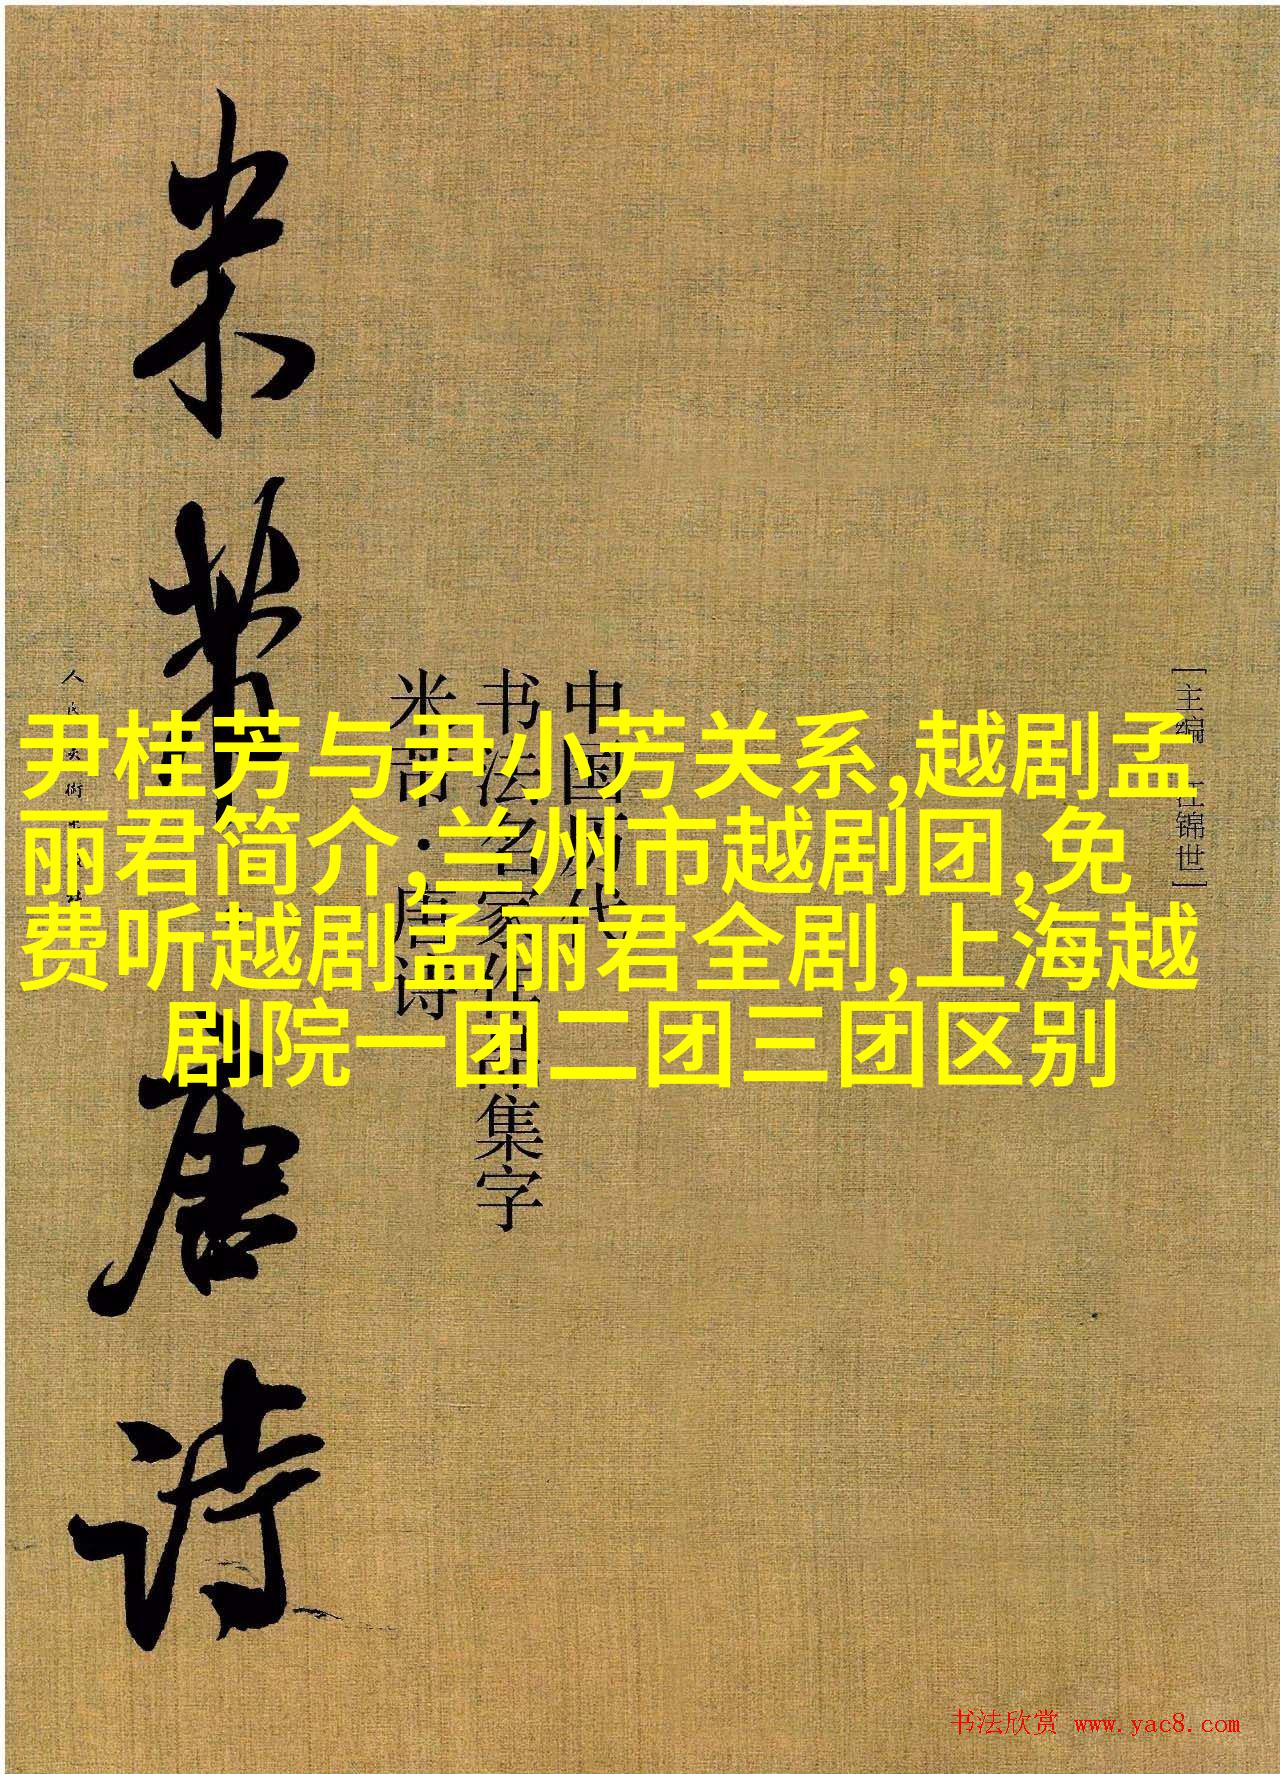 米芾唐诗
尹桂芳与尹小芳关系,越剧孟
丽君简介,兰州市越剧团,免
费听越剧孟丽君全剧,上海越
剧院一团二团三团区别
中国历代
书法名家作品集字
米芾·唐诗
[主编 江锦世]
书法欣赏 www.yac8.com